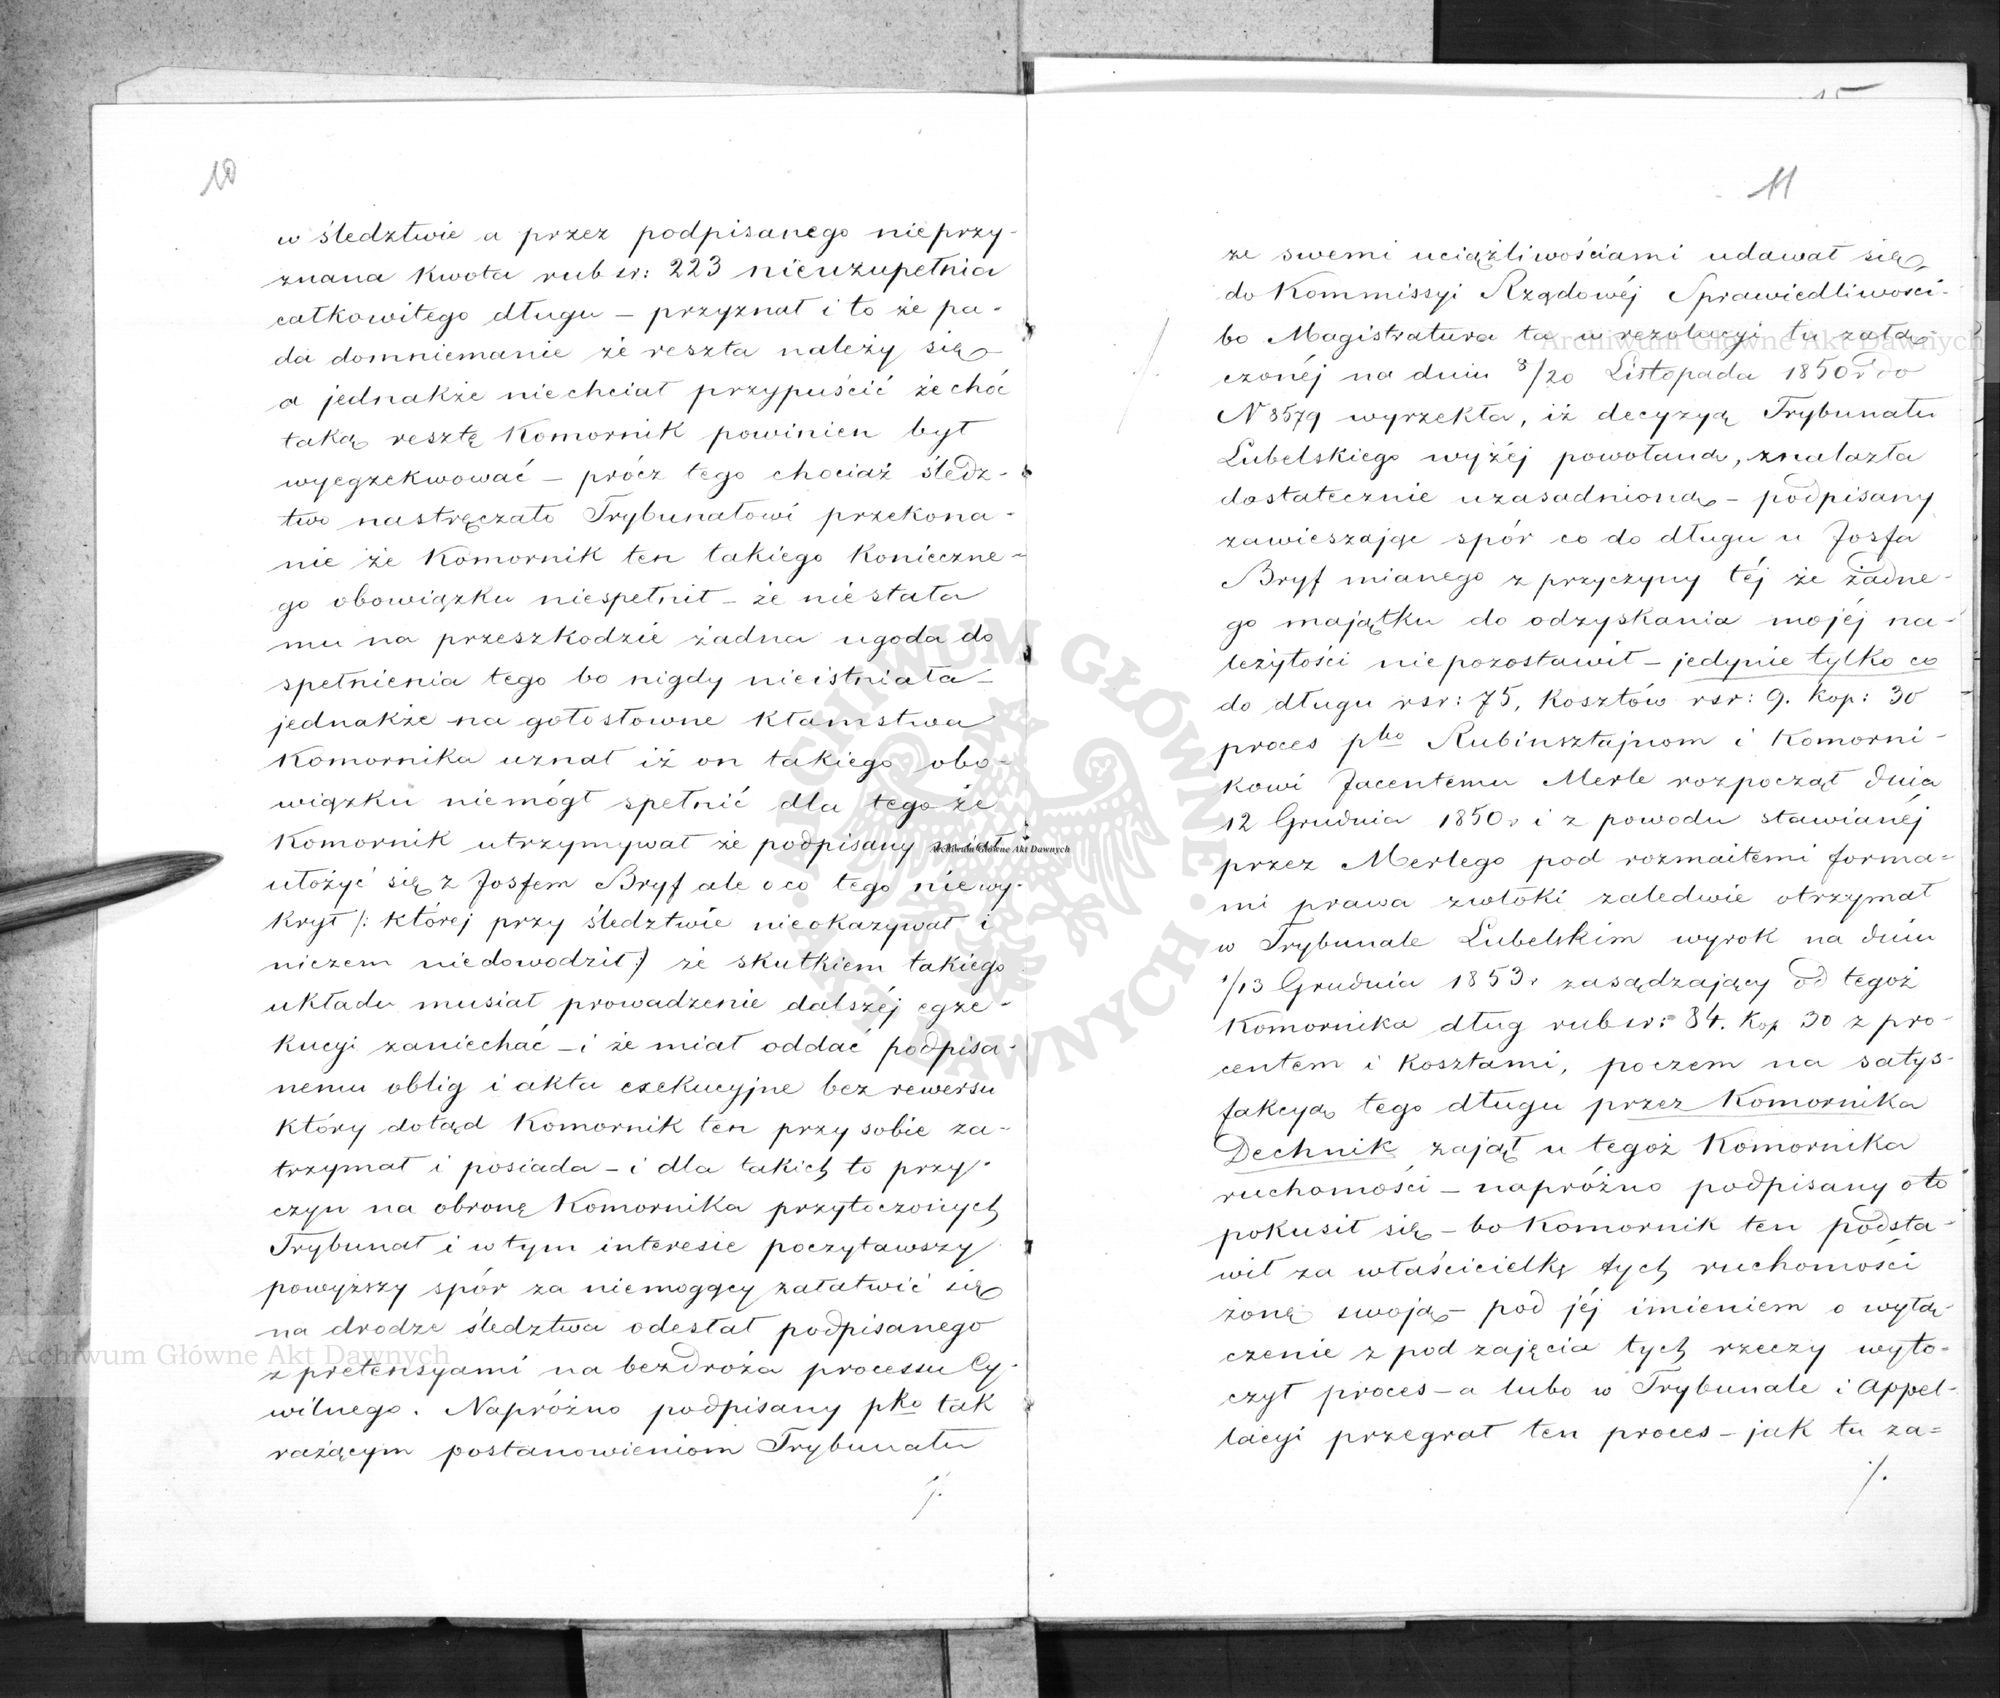 10
w śledztwie a przez podpisanego nieprzy-
znana kwota rub sr: 223 nieuzupełnia
całkowitego długu – przyznał i to że pa-
da domniemanie że reszta należy się –
a jednakże niechciał przypuścić że choć
taką resztę Komornik powinien był
wyegzekwować – prócz tego chociaż śledz-
two nastręczało Trybunałowi przekona-
nie że Komornik ten takiego konieczne-
go obowiązku niespełnił – że niestała
mu na przeszkodzie żadna ugoda do
spełnienia tego bo nigdy nieistniała –
jednakże na gołosłowne kłamstwa
Komornika uznał iż on takiego obo-
wiązku niemógł spełnić dla tego że
Komornik utrzymywał że podpisany miał
ułożyć się z Josfem Bryf ale o co tego niewy-
krył /: której przy śledztwie nieokazywał i
niczem niedowodził :/ że skutkiem takiego
układu musiał prowadzenie dalszéj egze-
kucyi zaniechać – i że miał oddać podpisa-
nemu oblig i akta exekucyjne bez rewersu
który dotąd Komornik ten przy sobie za-
trzymał i posiada – i dla takich to przy-
czyn na obronę Komornika przytoczonych
Trybunał i w tym interesie poczytawszy
powyższy spór za niemogący załatwić się
na drodze śledztwa odesłał podpisanego
z pretensyami na bezdroża processu Cy-
wilnego. Napróżno podpisany pko tak
rażącym postanowieniom Trybunału
./.
11
ze swemi uciążliwościami udawał się
do Kommissyi Rządowéj Sprawiedliwości –
bo Magistratura ta w rezolucyi tu załą-
czonéj na dniu 8/20 Listopada 1850 r do
N 8579 wyrzekła, iż decyzyą Trybunału
Lubelskiego wyżéj powołaną, znalazła
dostatecznie uzasadnioną – podpisany
zawieszając spór co do długu u Josfa
Bryf mianego z przyczyny téj że żadne-
go majątku do odzyskania mojéj na-
leżytości niepozostawił – jedynie tylko co
do długu rsr: 75, kosztów rsr: 9. kop: 30
proces pko Rubinsztajnom i Komorni-
kowi Jacentemu Merle rozpoczął dnia
12 Grudnia 1850 r i z powodu stawianéj
przez Merlego pod rozmaitemi forma-
mi prawa zwłoki zaledwie otrzymał
w Trybunale Lubelskim wyrok na dniu
1/13 Grudnia 1853 r zasądzający od tegoż
Komornika dług rub sr: 84. kop 30 z pro-
centem i kosztami, poczem na satys-
fakcyą tego długu przez Komornika
Dechnik zajął u tegoż Komornika
ruchomości – napróżno podpisany o to
pokusił się – bo Komornik ten podsta-
wił za właścicielkę tych ruchomości
żonę swoją – pod jéj imieniem o wyłą-
czenie z pod zajęcia tych rzeczy wyto-
czył proces – a lubo w Trybunale i Appel-
lacyi przegrał ten proces – jak tu za-
./.
Archiwum Główne Akt Dawnych
Archiwum Główne Akt Dawnych
Archiwum Główne Akt Dawnych
ARCHIWUM GŁÓWNE AKT DAWNYCH